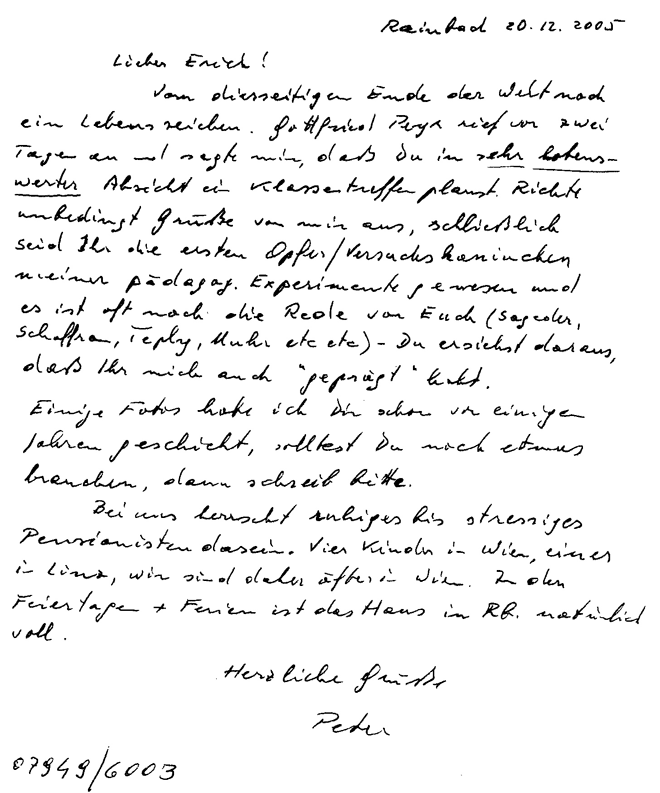 Rainbach 20.12.2005
Lieber Erich!
Vom diesseitigen Ende der Welt noch
ein Lebenszeichen. Gottfried Peyr rief vor zwei
Tagen an und sagte mir, daß Du in sehr lobens-
werter Absicht ein Klassentreffen planst. Richte
unbedingt Grüße von mir aus, schließlich
seid Ihr die ersten Opfer/Versuchskaninchen
meiner pädagog. Experimente gewesen und
es ist oft noch die Rede von Euch (Sageder,
Schaffran, Teply, Muhr etc etc) - Du ersiehst daraus,
daß Ihr mich auch "geprägt" habt.
Einige Fotos habe ich Dir schon vor einigen
Jahren geschickt, solltest Du noch etwas
brauchen, dann schreib bitte.
Bei uns herrscht ruhiges bis stressiges
Pensionistendasein. Vier Kinder in Wien, einer
in Linz, wir sind daher öfter in Wien. Zu den
Feiertagen + Ferien ist das Haus in Rb. natürlich
voll.
Herzliche Grüße
Peter
07949/6003